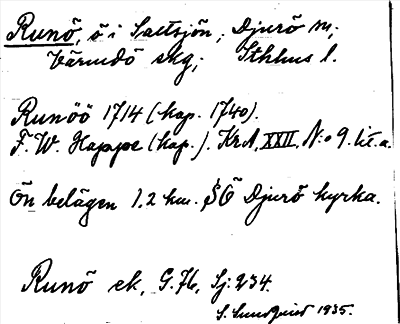 Runö, ö i Saltsjön, Djurö sn,
Värmdö skg, Sthlms l.
Runöö 1714 (kop. 1740).
F. W. Happe (kop.). KrA, XXII, N:o 9. lit. a.
Ön belägen 1,2 km. SÖ Djurö kyrka.
Runö ek, G. 76, Sj: 234.
S. Lundquist 1935.